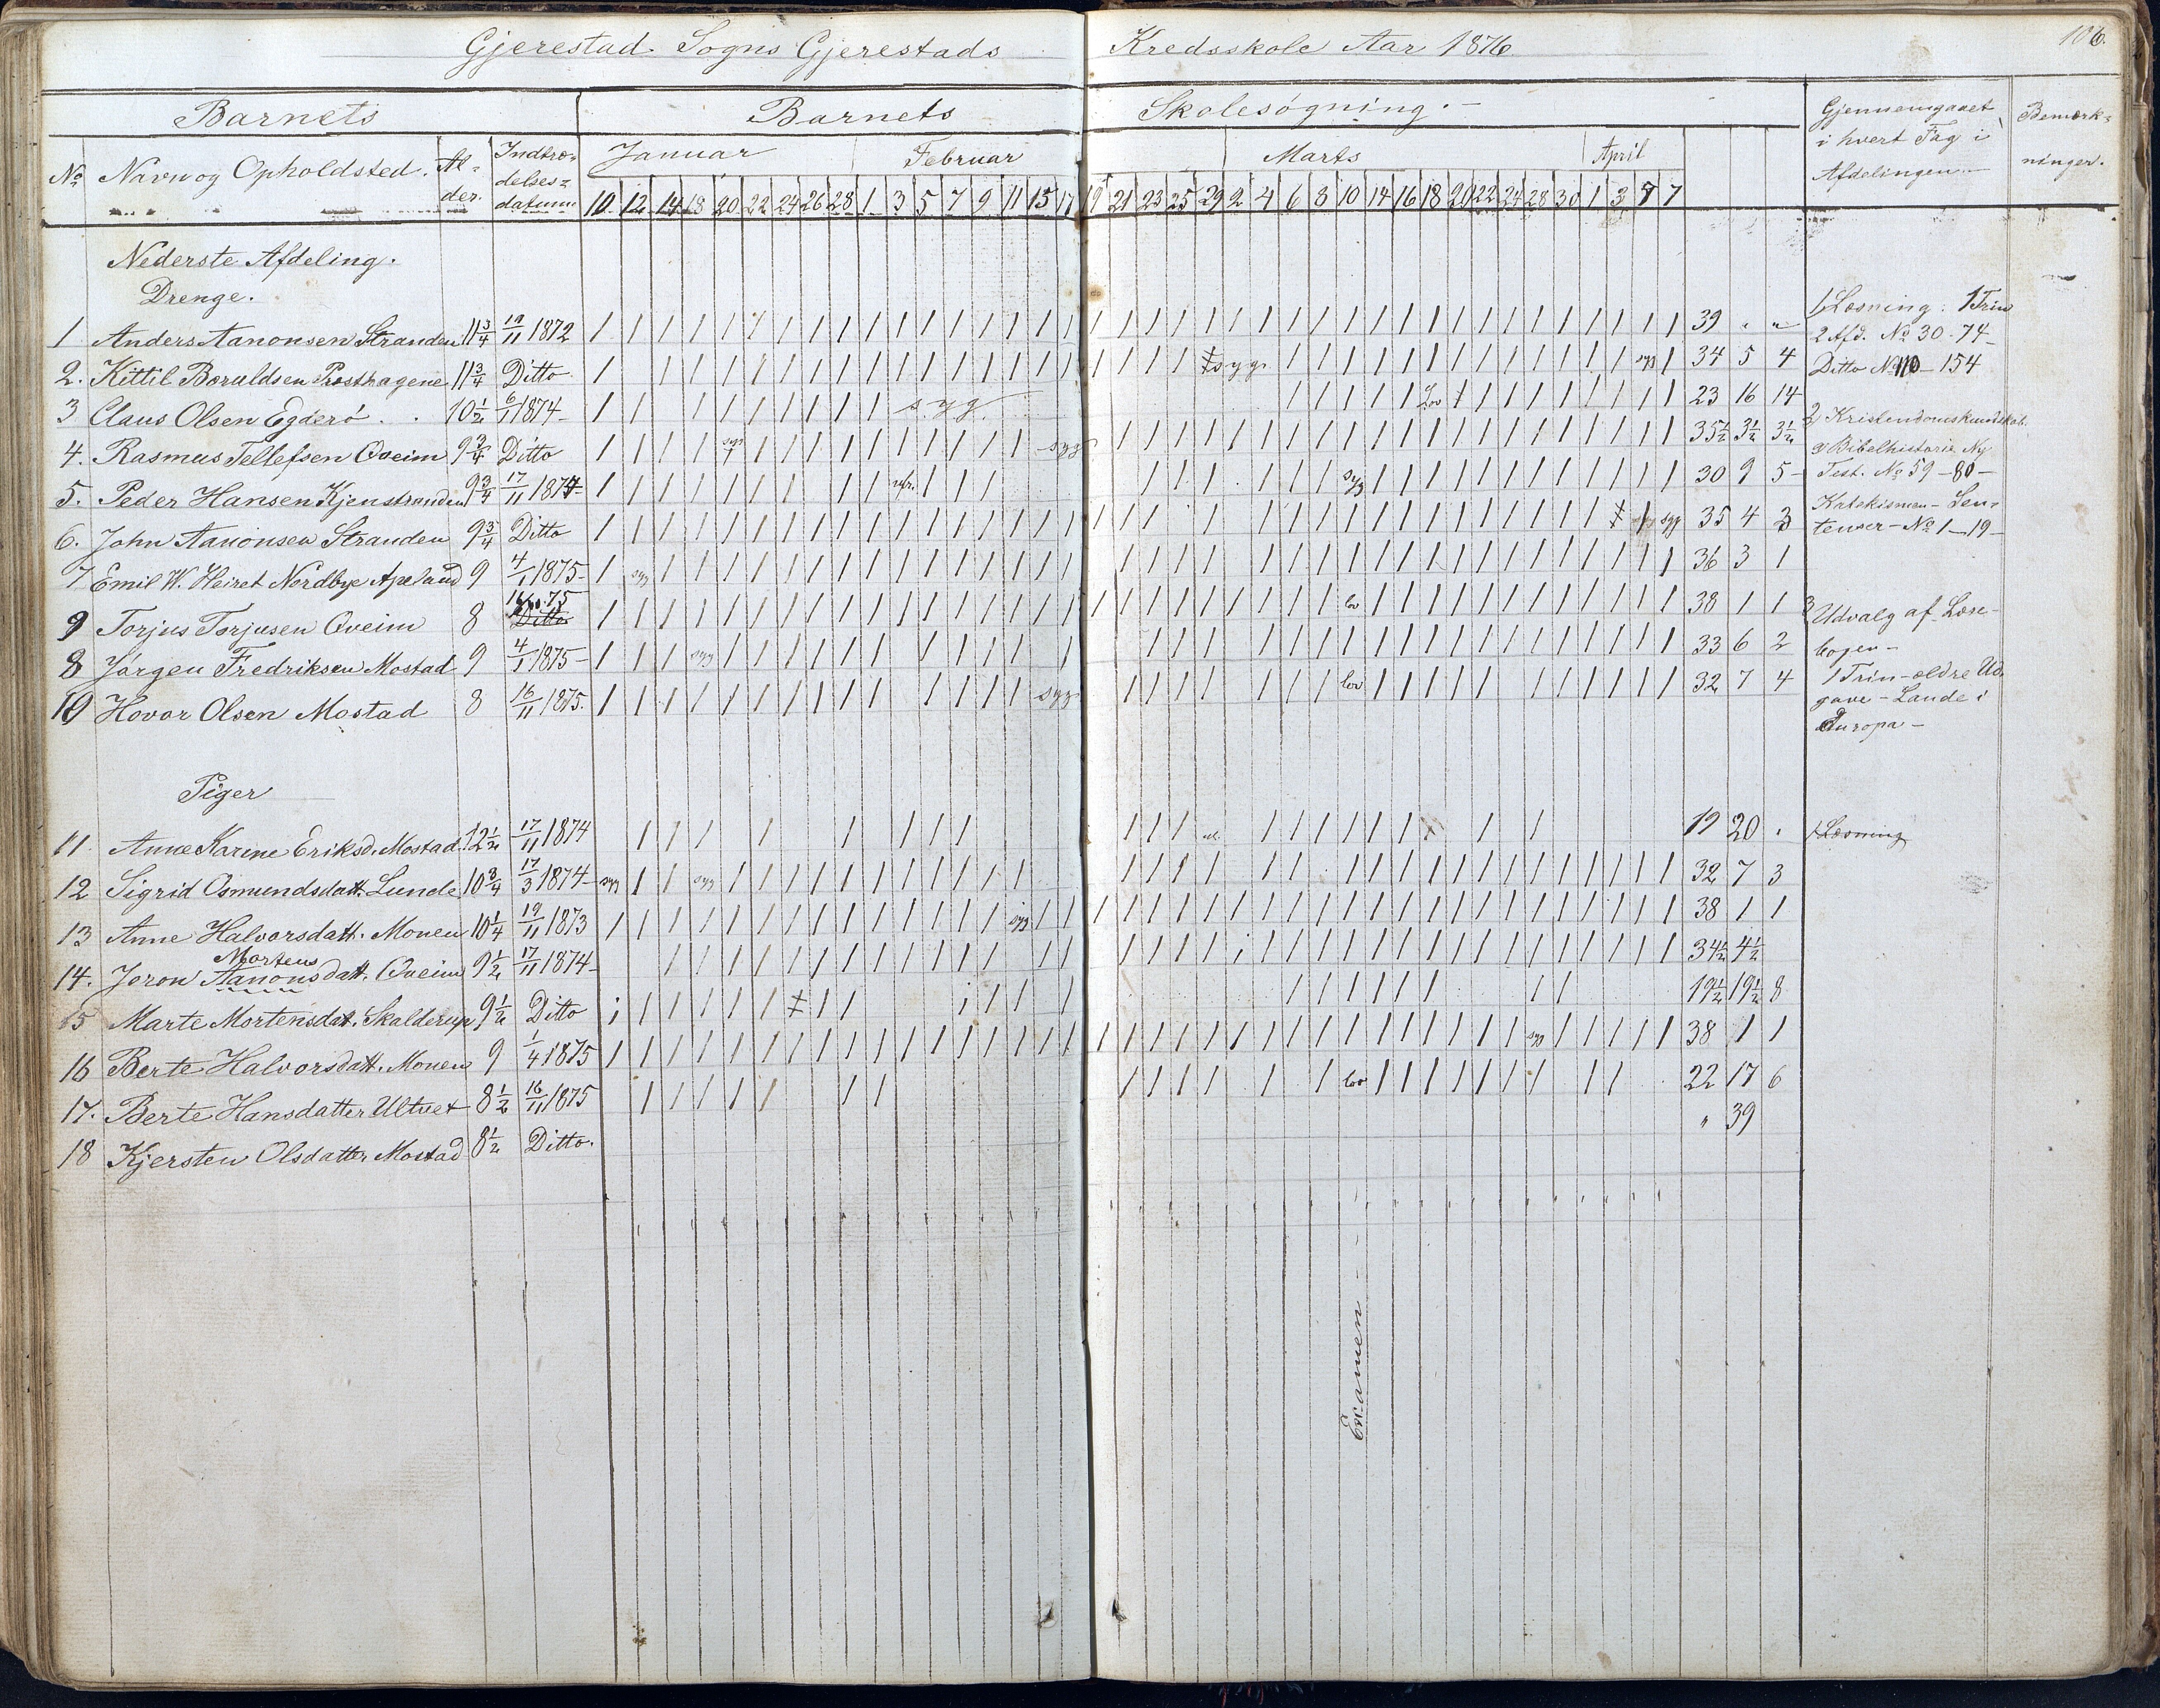 Gjerestad Sogns Gjerestads Kredsskole Aar 1876.
106.
Barnets Barnets Skolesøgning.
Gjennemgaaet i hvert Fag i Afdelingen
Bemærkninger.
No Navn og Opholdsted. Alder. Indtrædelsesdatum
Januar Februar Marts April
10 12 14 18 20 22 24 26 28 1 3 5 7 9 11 15 17 19 21 23 25 29 2 4 6 8 10 14 16 18 20 22 24 28 30 1 3 7
Nederste Afdeling.
Drenge.
1 Anders Aanonsen Stranden 11 3/4 19/11 1872 39 " "
2. Kittil Boruldsen Præsthagene 11 3/4 Ditto syg syg 34 5 4
3 Claus Olsen Egderö 10 1/2 6/1 1874 syg Lov 23 16 14
4. Rasmus Tellefsen Qveim 9 3/4 Ditto syg syg 35 1/2 3 1/2 3 1/2
5. Peder Hansen Kjenstranden 9 3/4 17/11 1874 syg 30 9 5
6. John Aanonsen Stranden 9 3/4 Ditto syg syg 35 4 3
7 Emil W. Heiret Nordbye Apeland 9 4/1 1875 syg 36 3 1
9 Torjus Torjusen Qveim 8 Ditto lov 38 1 1
8 Jörgen Fredriksen Mostad 9 4/1 1875 syg 33 6 2
10 Hovor Olsen Mostad 8 16/11 1875. syg lov 32 7 4
1, Læsning: 1 Trin
2 Afd. No 30-74
Ditto No 110-154
2, Kristendomskundskab.
a Bibelhistorie Ny
Test. No 59-80
Katekismen- Sentenser- No 1-19
3 Udvalg af Læsebogen-
1 Trin- ældre Udgave- Lande i
Europa-
Piger
11. Anne Karine Eriksd. Mostad 12 1/2 17/11 1874 19 20 "
1 Læsning
12 Sigrid Osmundsdatt. Lunde 10 3/4 17/3 1874 syg syg 32 7 3
13 Anne Halvorsdatt. Monen 10 1/4 19/11 1873 syg 38 1 1
Mortens
14. Joron Aanonsdatt. Qveim 9 1/2 17/11 1874 34 1/2 4 1/2
15 Marte Mortensdat. Skalderup 9 1/2 Ditto 19 1/2 19 1/2 8
16 Berte Halvorsdatt. Monen 9 1/4 1875 syg 38 1 1
17. Berte Hansdatter Ultvet 8 1/2 16/11 1875 lov 22 17 6
18 Kjersten Olsdatter Mostad 8 1/2 Ditto. " 39
Examen